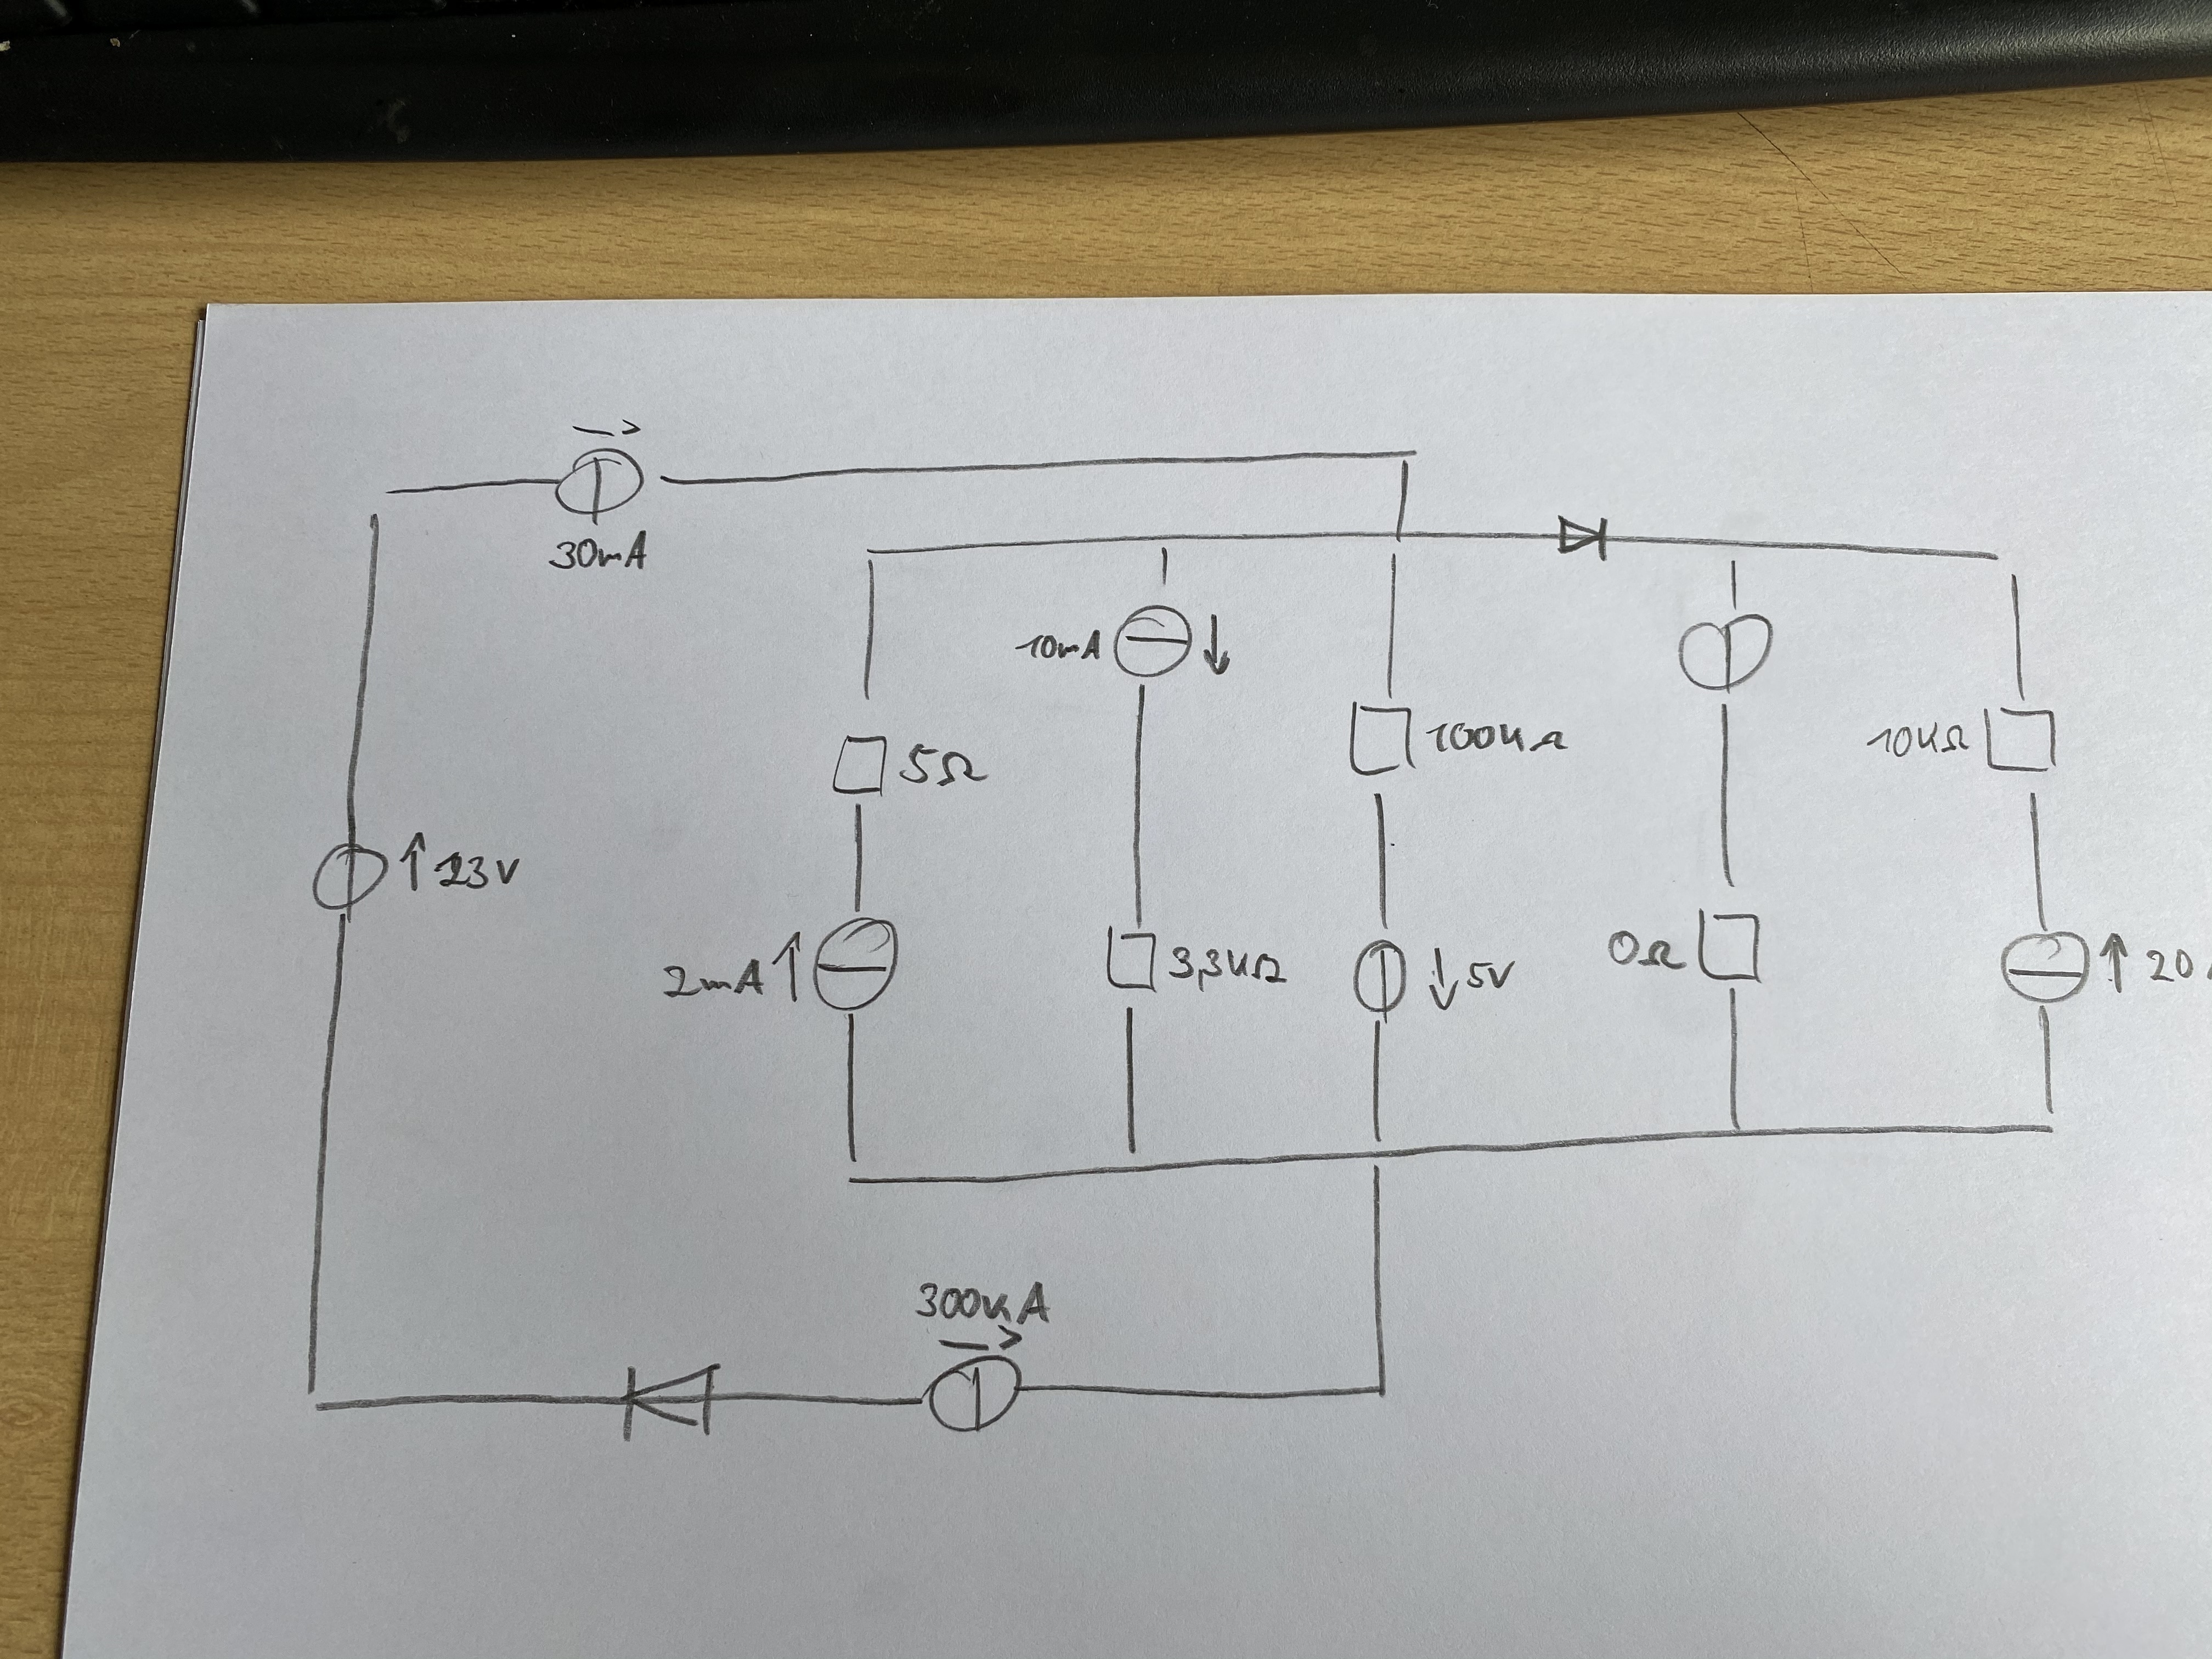 30mA
10mA
5Ω
100kΩ
10kΩ
23V
2mA
3,3kΩ
5V
0Ω
20
300kA